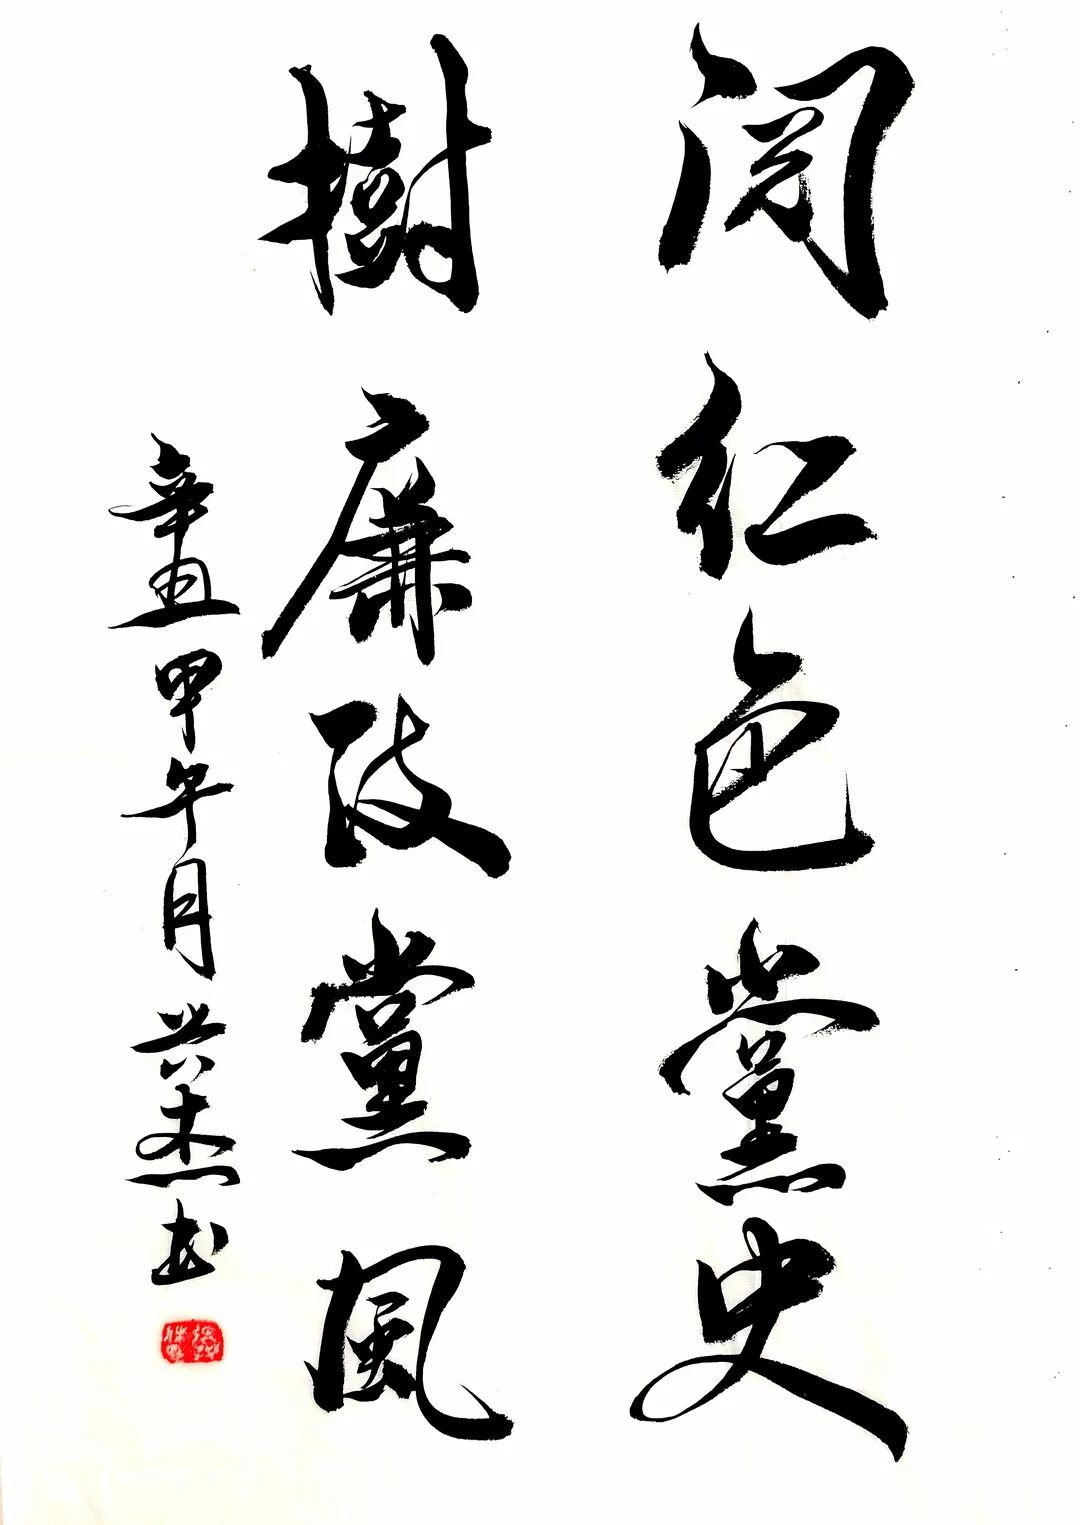 阅红色黨史
樹廉政黨風
辛丑甲午月兴杰书